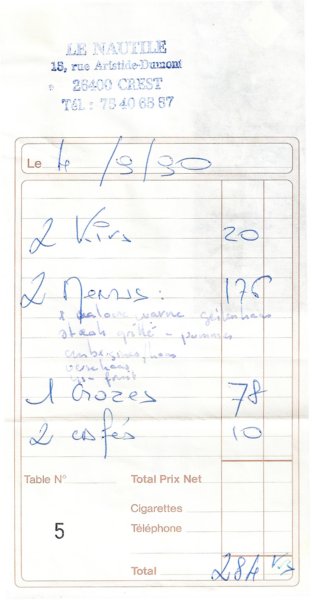 LE NAUTILE
15, rue Aristide-Dumont
26400 CREST
Tél : 75 40 68 87
Le 4/9/90
2 Kirs 20
2 Menus : 176
steak grillé -
1 Crozes 78
2 cafés 10
Table N° Total Prix Net
Cigarettes
5 Téléphone
Total 284